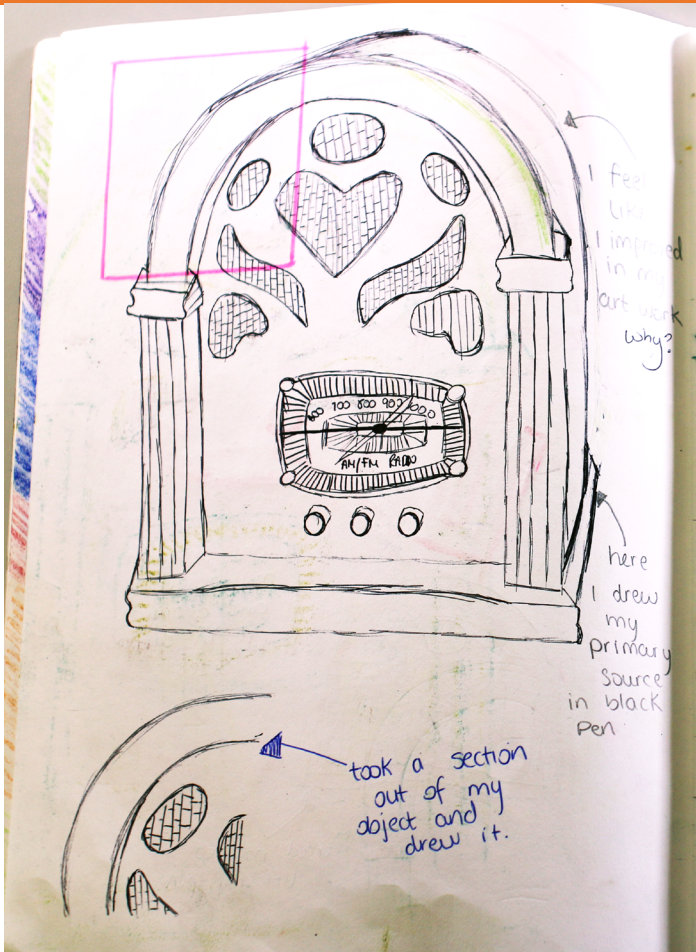 I feel
like
I improved
in my
art work
why?
600 700 800 900 1020
AM/FM RADIO
here
I drew
my
primary
source
in black
pen
took a section
out of my
object and
drew it.